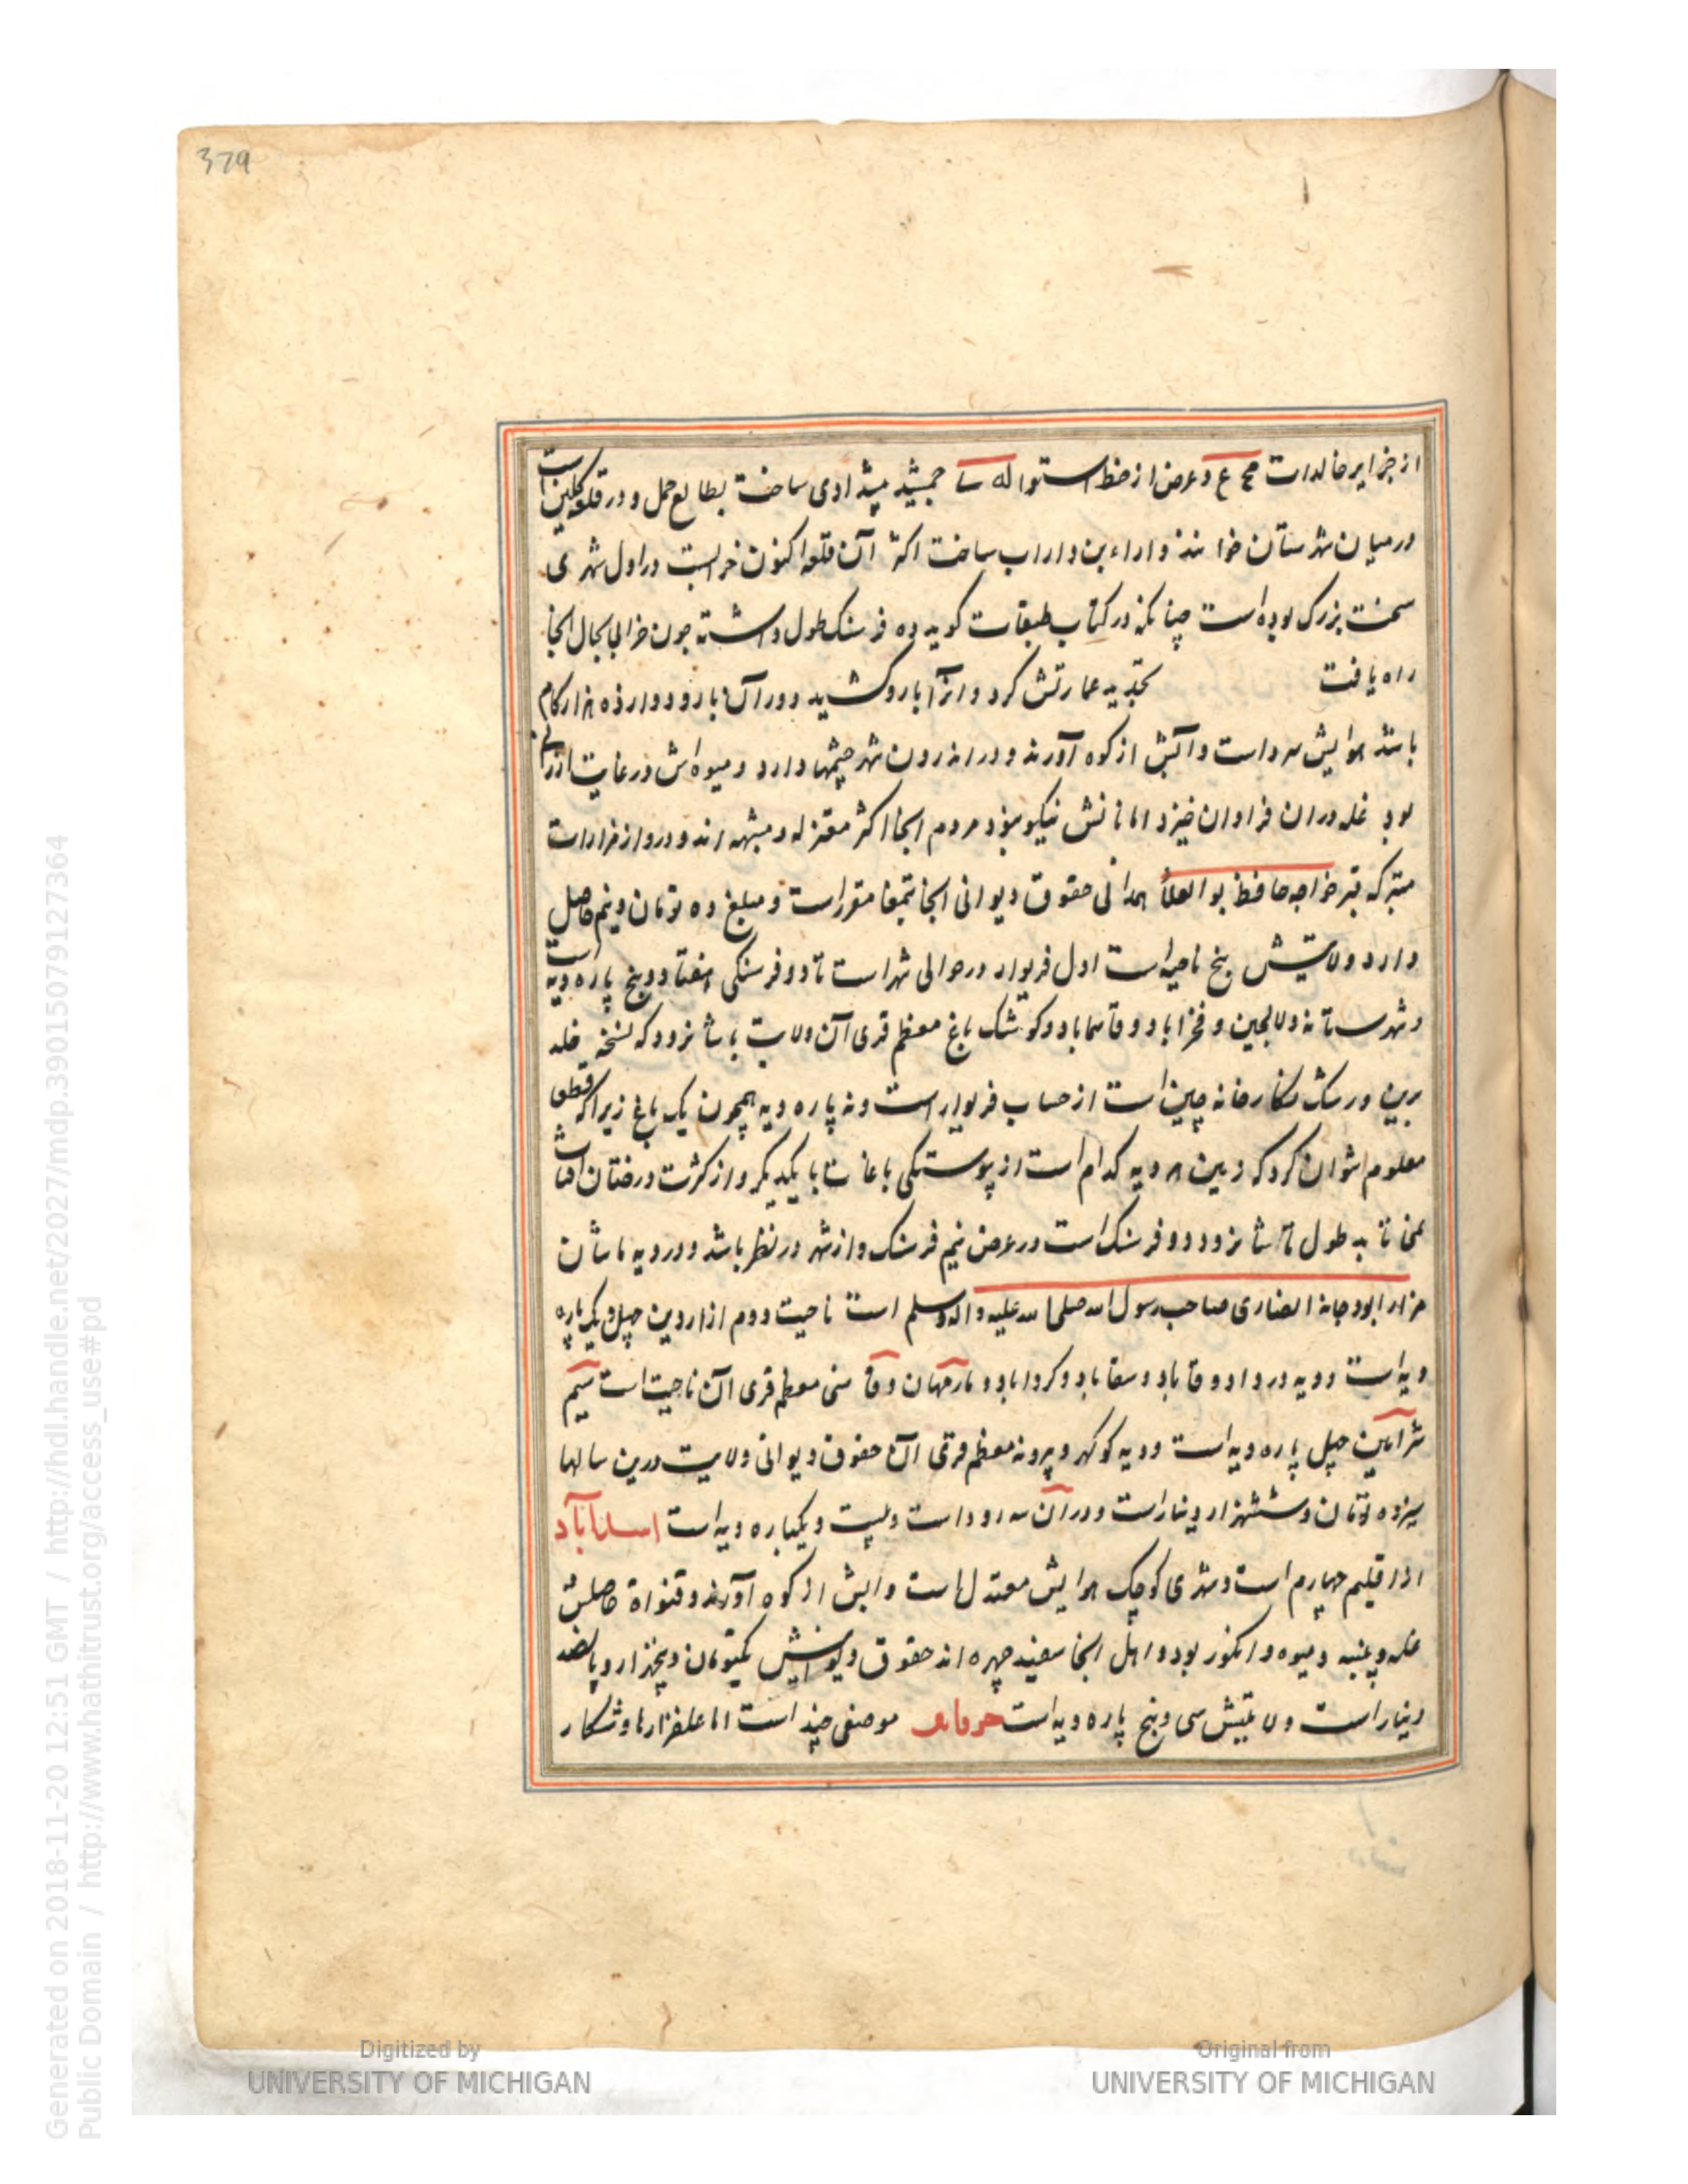 379
از جزایر خالدات مج ع و عرض از خط استوا له سا جمشید پیشدادی ساخت بطالع حمل و در قلعه گلین است
در میان شهرستان خوانند و داراء بن داراب ساخت اکثر آن قلعه اکنون خرابست در اول شهری
سخت بزرک بوده است چنانکه در کتاب طبقات کوید ده فرسنک طول داشته چون خرابی بحال انجا
راه یافت تجدید عمارتش کرد و انرا بارو کشید و دور آن بارو دوازده هزار کام
باشد هوایش سرد است و آبش از کوه آورند و در اندرون شهر چشمها دارد و میوه اش در غایت ارزانی
بود غله در ان فراوان خیزد اما نانش نیکو نبود مردم انجا اکثر معتزله و مشبهه اند و درو از مزارات
متبرکه قبر خواجه حافظ بو العلا همدانی حقوق دیوانی انجا بتمغا مقرر است و مبلغ ده تومان و نیم حاصل
دارد و ولایتش پنج ناحیه است اول فریوار در حوالی شهر است تا دو فرسنکی هفتاد و پنج پاره دیه است
و شهرستانه و لالجین و فخراباد و قاسماباد و کوشک باغ معظم قری آن ولایت باشد نزود که نسخه خلد
برین و رشک نکارخانه چین است از حساب فریوار است و نه پاره دیه همچون یک باغ زیرا که قطعا
معلوم نتوان کرد که زمین هر دیه کدام است از پیوستکی باغات با یکدیگر و از کثرت درختان افتاب
نمی تابد طول تا شا نرود دو فرسنک است در عرض نیم فرسنک و از شهر در نظر باشد و در دیه ماشان
مزار ابو دجانه انصاری صاحب رسول الله صلی الله علیه واله وسلم است ناحیت دوم ازاردین چهل و یک پاره
دیه است و دیه در داد و قاباد و سقاباد و کرداباد و مارجهان و قا سنی معظم قری ان ناحیت است سیم
شراهین چهل پاره دیه است و دیه کوکهر و پرونه معظم قری ان حقوق دیوانی ولایت درین سالها
سیزده تومان و ششهزار دینار است و در آن سه رود است و بیست و یکپاره دیه است اسداباد
از اقلیم چهارم است و شهری کوچک هوایش معتدل است و ابش از کوه آورند و قنواة حاصلش
غله و پنبه و میوه و انکور بود و اهل انجا سفید چهره اند حقوق دیوانیش یکتومان و پنجهزار و پانصد
دینار است ولایتش سی و پنج پاره دیه است موضعی چند است اما علفزارها و شکار
Generated on 2018-11-20 12:51 GMT / http://hdl.handle.net/2027/mdp.39015079127364
Public Domain / http://www.hathitrust.org/access_use#pd
Digitized by
UNIVERSITY OF MICHIGAN
Original from
UNIVERSITY OF MICHIGAN